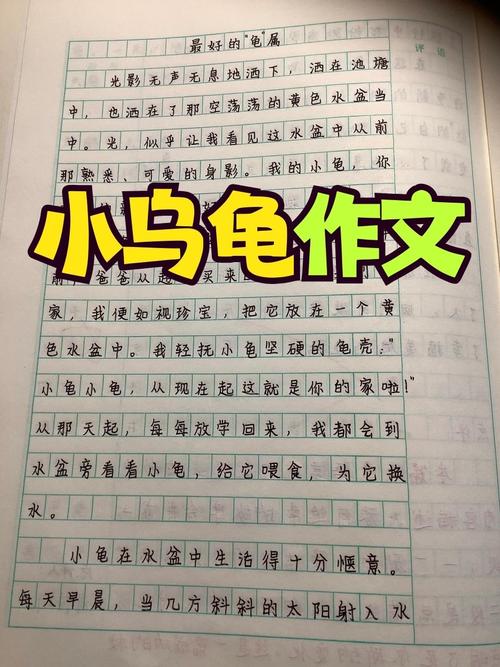 最好的"龟"属
评语
光影无声无息地洒下，洒在池塘
中，也洒在了那空荡荡的黄色水盆当
中。光，似乎让我看见这水盆中从前
那熟悉、可爱的身影。我的小龟，你
小乌龟作文
前，爸爸从
买来
家，我便如视珍宝，把它放在一个黄
色水盆中。我轻抚小龟坚硬的龟壳："
小龟小龟，从现在起这就是你的家啦！"
从那天起，每每放学回来，我都会到
水盆旁看看小龟，给它喂食，为它换
水。
小龟在水盆中生活得十分惬意。
每天早晨，当几方斜斜的太阳射入水